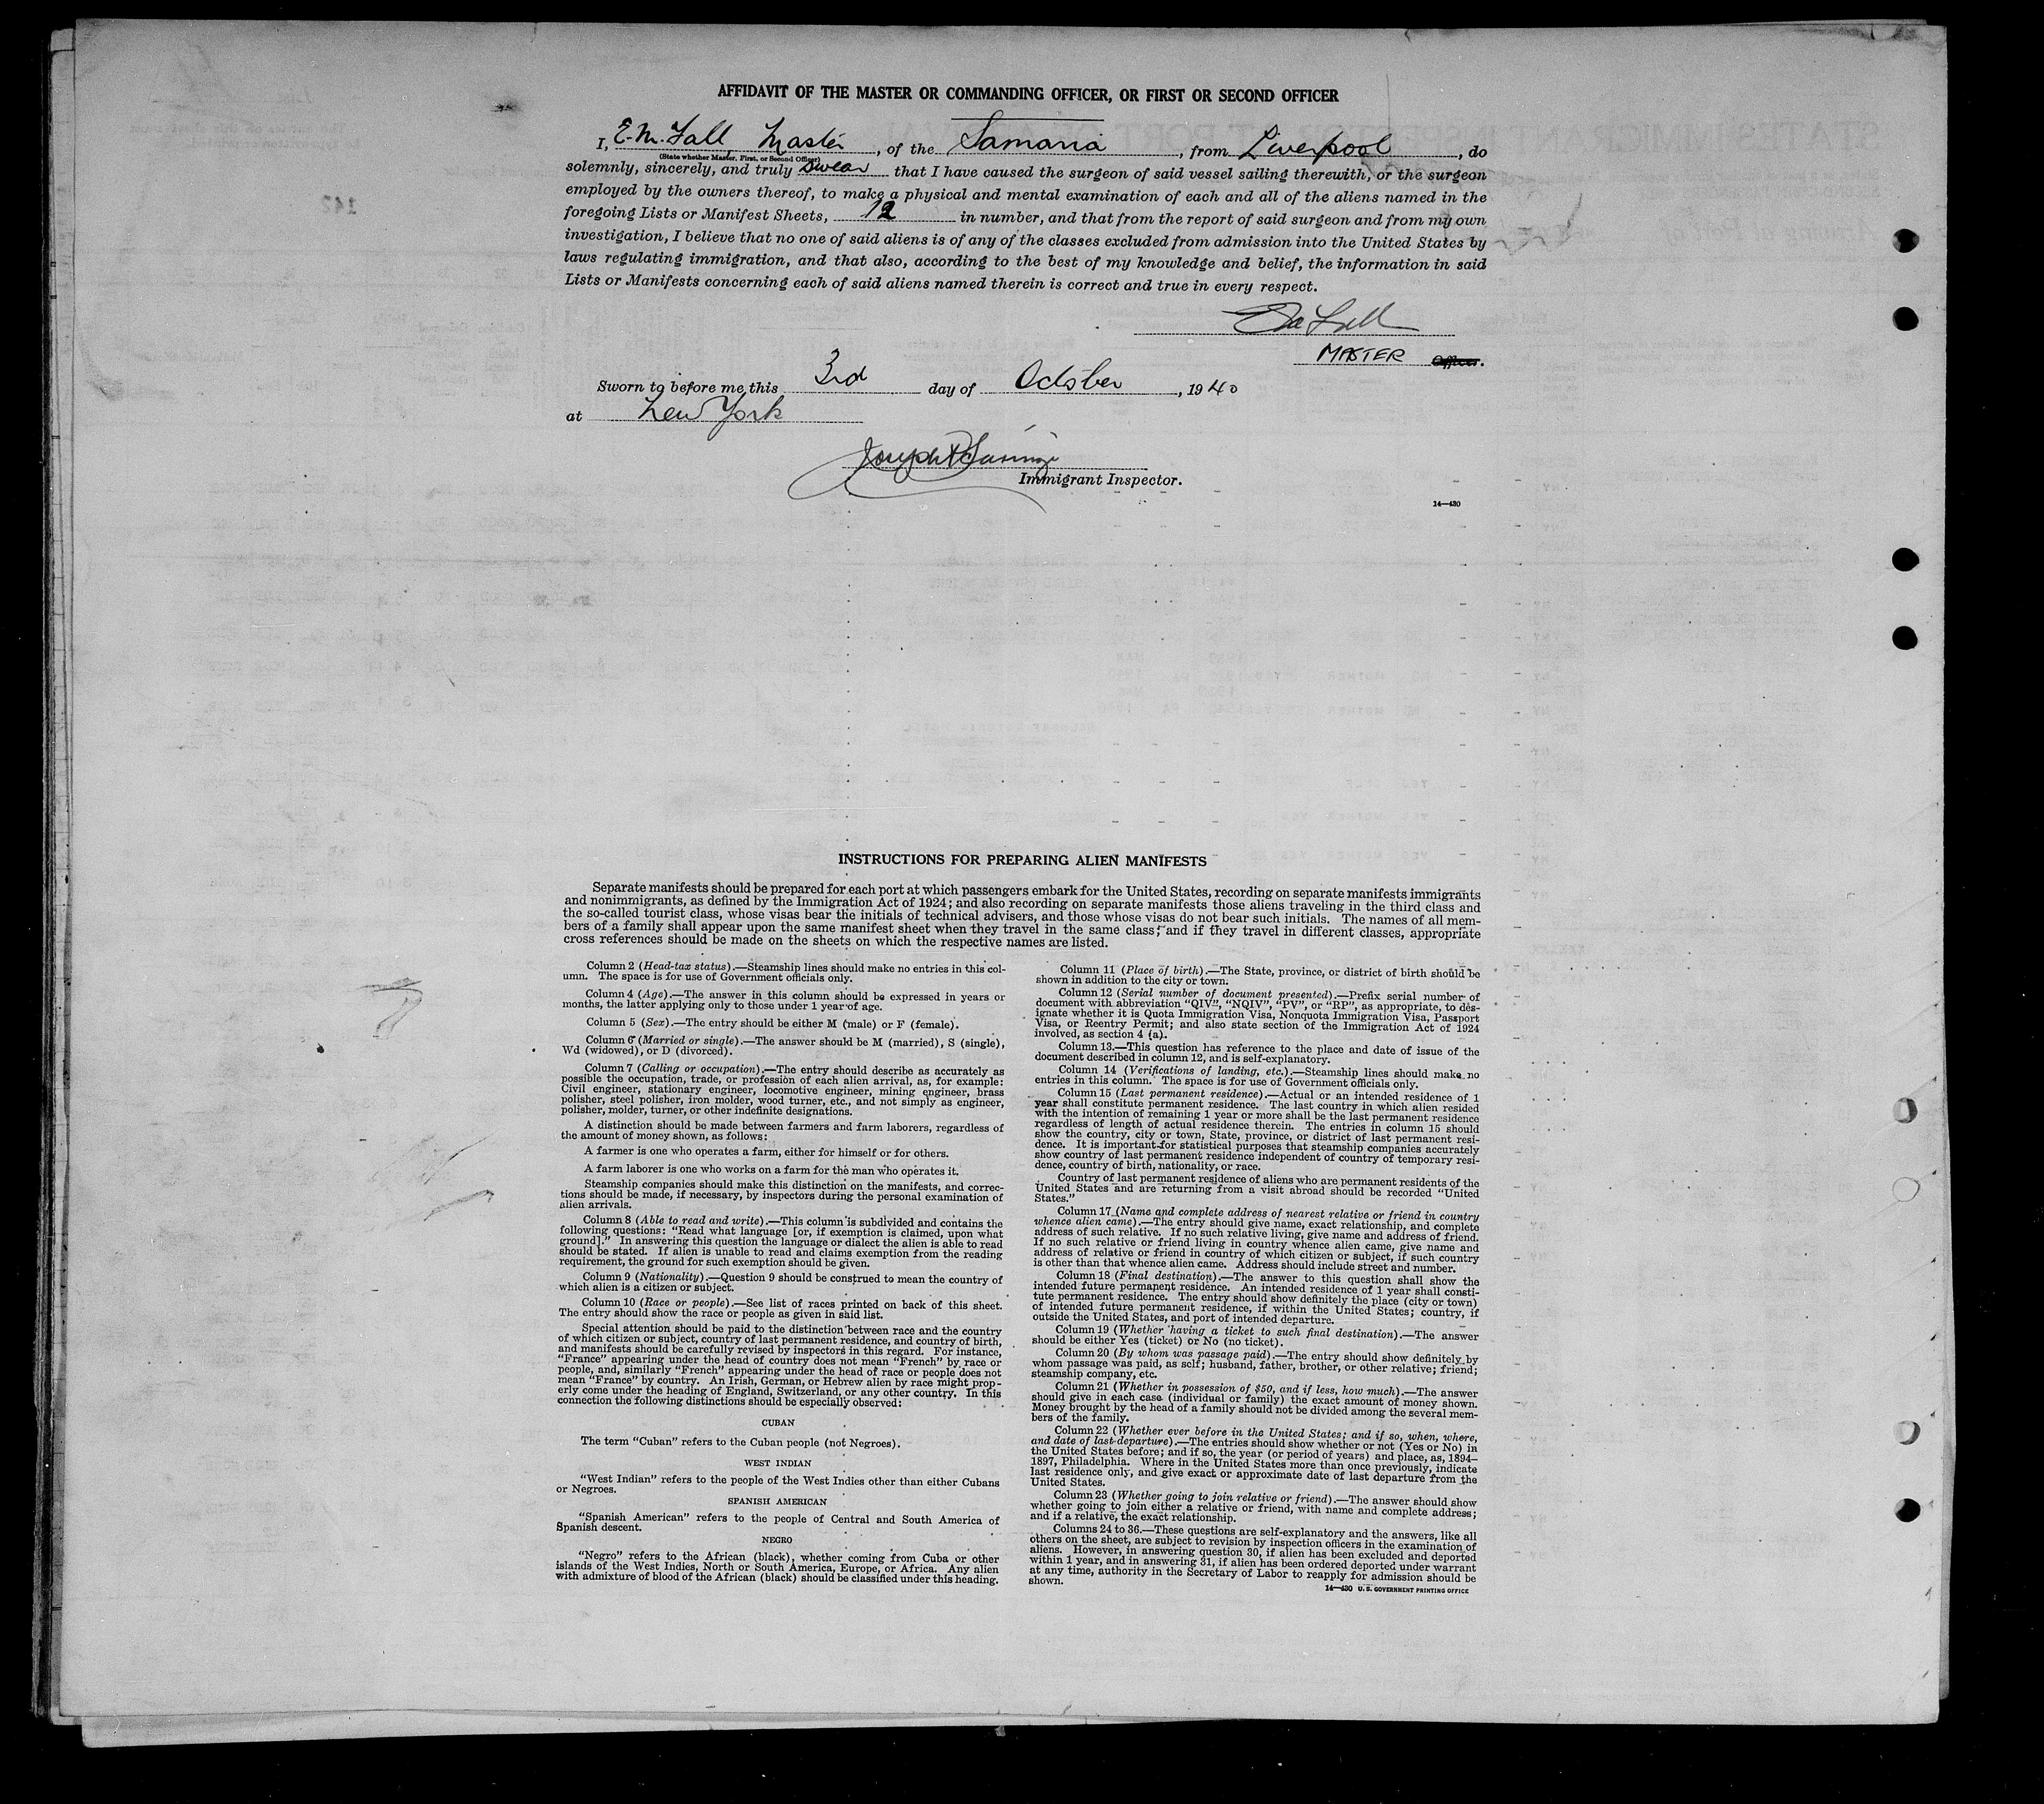 AFFIDAVIT OF THE MASTER OR COMMANDING OFFICER, OR FIRST OR SECOND OFFICER
I, E. M. Fall, Master, of the Samaria, from Liverpool, do
(State whether Master, First, or Second Officer)
solemnly, sincerely, and truly swear that I have caused the surgeon of said vessel sailing therewith, or the surgeon
employed by the owners thereof, to make a physical and mental examination of each and all of the aliens named in the
foregoing Lists or Manifest Sheets, 12 in number, and that from the report of said surgeon and from my own
investigation, I believe that no one of said aliens is of any of the classes excluded from admission into the United States by
laws regulating immigration, and that also, according to the best of my knowledge and belief, the information in said
Lists or Manifests concerning each of said aliens named therein is correct and true in every respect.
MASTER Officer.
Sworn to before me this 3rd day of October, 1940
at New York
Joseph
Immigrant Inspector.
14—430
INSTRUCTIONS FOR PREPARING ALIEN MANIFESTS
Separate manifests should be prepared for each port at which passengers embark for the United States, recording on separate manifests immigrants
and nonimmigrants, as defined by the Immigration Act of 1924; and also recording on separate manifests those aliens traveling in the third class and
the so-called tourist class, whose visas bear the initials of technical advisers, and those whose visas do not bear such initials. The names of all mem-
bers of a family shall appear upon the same manifest sheet when they travel in the same class; and if they travel in different classes, appropriate
cross references should be made on the sheets on which the respective names are listed.
Column 2 (Head-tax status).—Steamship lines should make no entries in this col-
umn. The space is for use of Government officials only.
Column 4 (Age).—The answer in this column should be expressed in years or
months, the latter applying only to those under 1 year of age.
Column 5 (Sex).—The entry should be either M (male) or F (female).
Column 6 (Married or single).—The answer should be M (married), S (single),
Wd (widowed), or D (divorced).
Column 7 (Calling or occupation).—The entry should describe as accurately as
possible the occupation, trade, or profession of each alien arrival, as, for example:
Civil engineer, stationary engineer, locomotive engineer, mining engineer, brass
polisher, steel polisher, iron molder, wood turner, etc., and not simply as engineer,
polisher, molder, turner, or other indefinite designations.
A distinction should be made between farmers and farm laborers, regardless of
the amount of money shown, as follows:
A farmer is one who operates a farm, either for himself or for others.
A farm laborer is one who works on a farm for the man who operates it.
Steamship companies should make this distinction on the manifests, and correc-
tions should be made, if necessary, by inspectors during the personal examination of
alien arrivals.
Column 8 (Able to read and write).—This column is subdivided and contains the
following questions: “Read what language [or, if exemption is claimed, upon what
ground].” In answering this question the language or dialect the alien is able to read
should be stated. If alien is unable to read and claims exemption from the reading
requirement, the ground for such exemption should be given.
Column 9 (Nationality).—Question 9 should be construed to mean the country of
which alien is a citizen or subject.
Column 10 (Race or people).—See list of races printed on back of this sheet.
The entry should show the race or people as given in said list.
Special attention should be paid to the distinction between race and the country
of which citizen or subject, country of last permanent residence, and country of birth,
and manifests should be carefully revised by inspectors in this regard. For instance,
“France” appearing under the head of country does not mean “French” by race or
people, and, similarly “French” appearing under the head of race or people does not
mean “France” by country. An Irish, German, or Hebrew alien by race might prop-
erly come under the heading of England, Switzerland, or any other country. In this
connection the following distinctions should be especially observed:
CUBAN
The term “Cuban” refers to the Cuban people (not Negroes).
WEST INDIAN
“West Indian” refers to the people of the West Indies other than either Cubans
or Negroes.
SPANISH AMERICAN
“Spanish American” refers to the people of Central and South America of
Spanish descent.
NEGRO
“Negro” refers to the African (black), whether coming from Cuba or other
islands of the West Indies, North or South America, Europe, or Africa. Any alien
with admixture of blood of the African (black) should be classified under this heading.
Column 11 (Place of birth).—The State, province, or district of birth should be
shown in addition to the city or town.
Column 12 (Serial number of document presented).—Prefix serial number of
document with abbreviation “QIV”, “NQIV”, “PV”, or “RP”, as appropriate, to des-
ignate whether it is Quota Immigration Visa, Nonquota Immigration Visa, Passport
Visa, or Reentry Permit; and also state section of the Immigration Act of 1924
involved, as section 4 (a).
Column 13.—This question has reference to the place and date of issue of the
document described in column 12, and is self-explanatory.
Column 14 (Verifications of landing, etc.).—Steamship lines should make no
entries in this column. The space is for use of Government officials only.
Column 15 (Last permanent residence).—Actual or an intended residence of 1
year shall constitute permanent residence. The last country in which alien resided
with the intention of remaining 1 year or more shall be the last permanent residence
regardless of length of actual residence therein. The entries in column 15 should
show the country, city or town, State, province, or district of last permanent resi-
dence. It is important for statistical purposes that steamship companies accurately
show country of last permanent residence independent of country of temporary resi-
dence, country of birth, nationality, or race.
Country of last permanent residence of aliens who are permanent residents of the
United States and are returning from a visit abroad should be recorded “United
States.”
Column 17 (Name and complete address of nearest relative or friend in country
whence alien came).—The entry should give name, exact relationship, and complete
address of such relative. If no such relative living, give name and address of friend.
If no such relative or friend living in country whence alien came, give name and
address of relative or friend in country of which citizen or subject, if such country
is other than that whence alien came. Address should include street and number.
Column 18 (Final destination).—The answer to this question shall show the
intended future permanent residence. An intended residence of 1 year shall consti-
tute permanent residence. The entry should show definitely the place (city or town)
of intended future permanent residence, if within the United States; country, if
outside the United States, and port of intended departure.
Column 19 (Whether having a ticket to such final destination).—The answer
should be either Yes (ticket) or No (no ticket).
Column 20 (By whom was passage paid).—The entry should show definitely by
whom passage was paid, as self; husband, father, brother, or other relative; friend;
steamship company, etc.
Column 21 (Whether in possession of $50, and if less, how much).—The answer
should give in each case (individual or family) the exact amount of money shown.
Money brought by the head of a family should not be divided among the several mem-
bers of the family.
Column 22 (Whether ever before in the United States; and if so, when, where,
and date of last departure).—The entries should show whether or not (Yes or No) in
the United States before; and if so, the year (or period of years) and place, as, 1894–
1897, Philadelphia. Where in the United States more than once previously, indicate
last residence only, and give exact or approximate date of last departure from the
United States.
Column 23 (Whether going to join relative or friend).—The answer should show
whether going to join either a relative or friend, with name and complete address;
and if a relative, the exact relationship.
Columns 24 to 36.—These questions are self-explanatory and the answers, like all
others on the sheet, are subject to revision by inspection officers in the examination of
aliens. However, in answering question 30, if alien has been excluded and deported
within 1 year, and in answering 31, if alien has been ordered deported under warrant
at any time, authority in the Secretary of Labor to reapply for admission should be
shown.
14—430 U. S. GOVERNMENT PRINTING OFFICE